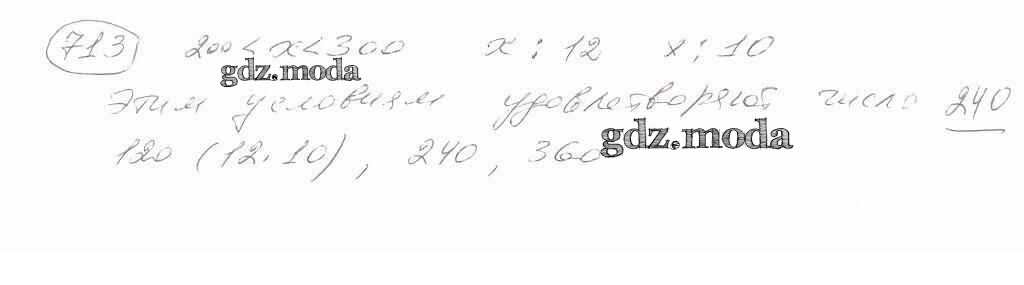 713 200 < x < 300 x : 12 x : 10
gdz.moda
Этим условиям удовлетворяют число 240
gdz.moda
120 (12 · 10), 240, 360